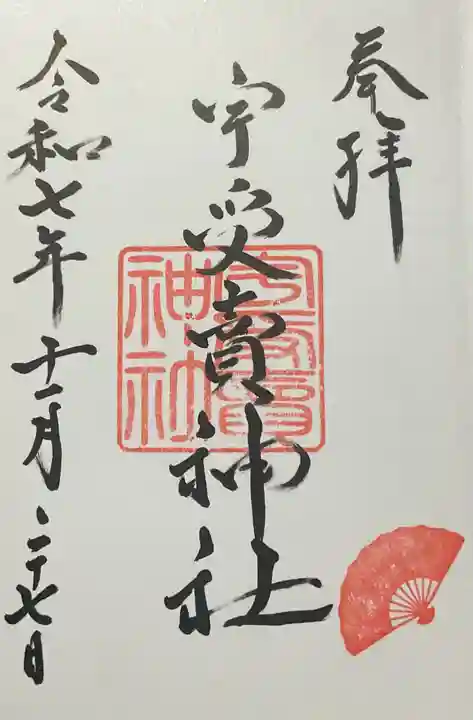 奉拝
宇受賣神社
宇受賣
神社
令和七年十一月二十七日